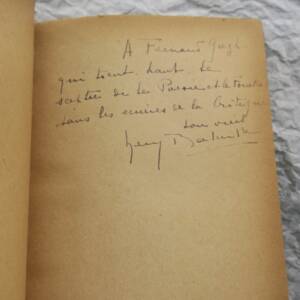 A Fernand Gregh
qui tient haut le
sceptre de la Poésie et le
dans les de la Critique
son vieil
Henry Bataille